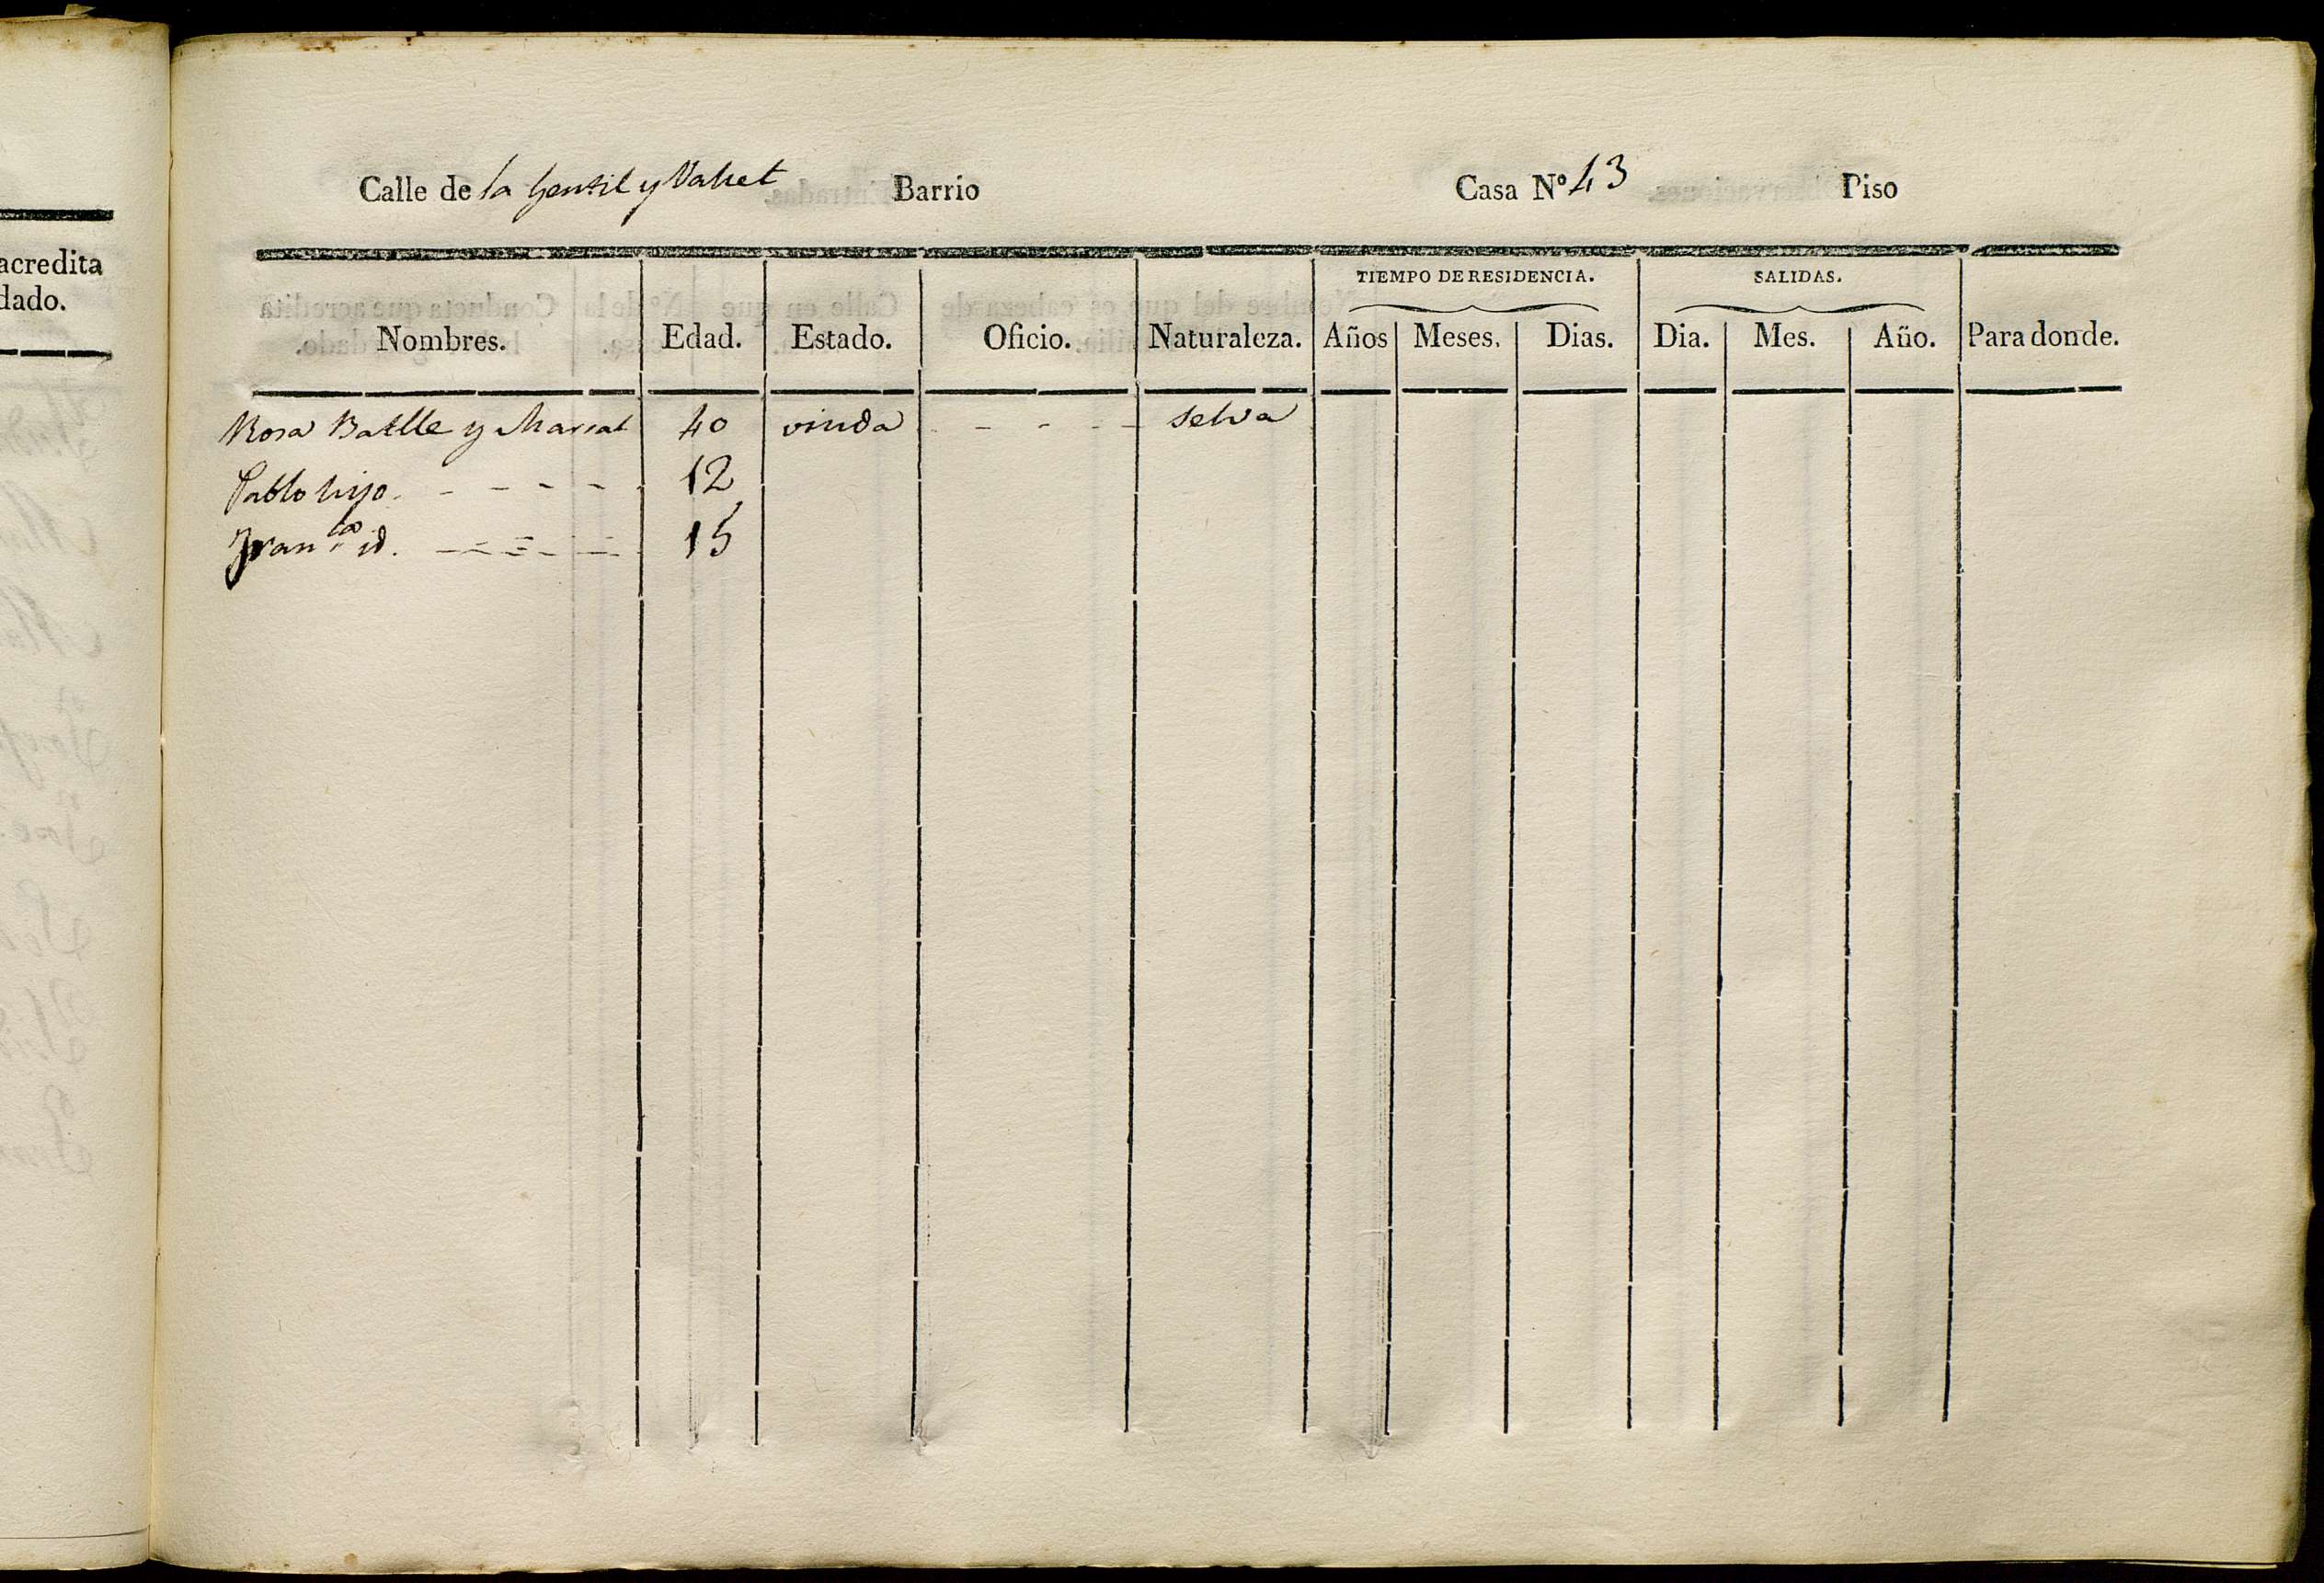 acredita
dado.
Calle de la Gentil y Vallet Barrio Casa Nº 43 Piso
TIEMPO DE RESIDENCIA. SALIDAS.
Nombres. Edad. Estado. Oficio. Naturaleza. Años Meses. Dias. Dia. Mes. Año. Para donde.
Rosa Batlle y 40 viuda - - - - Selva
Pablo hijo. - - - - - 12
Fran.ca id. - - - - - 15